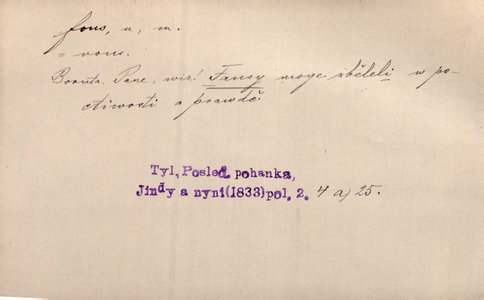 fous, u, m.
= vous.
Boruta. Pane, wiz! Fausy moge zběleli w po-
ctiwosti a prawdě.
Tyl, Posled. pohanka,
Jindy a nyni(1833)pol. 2. 4 a) 25.